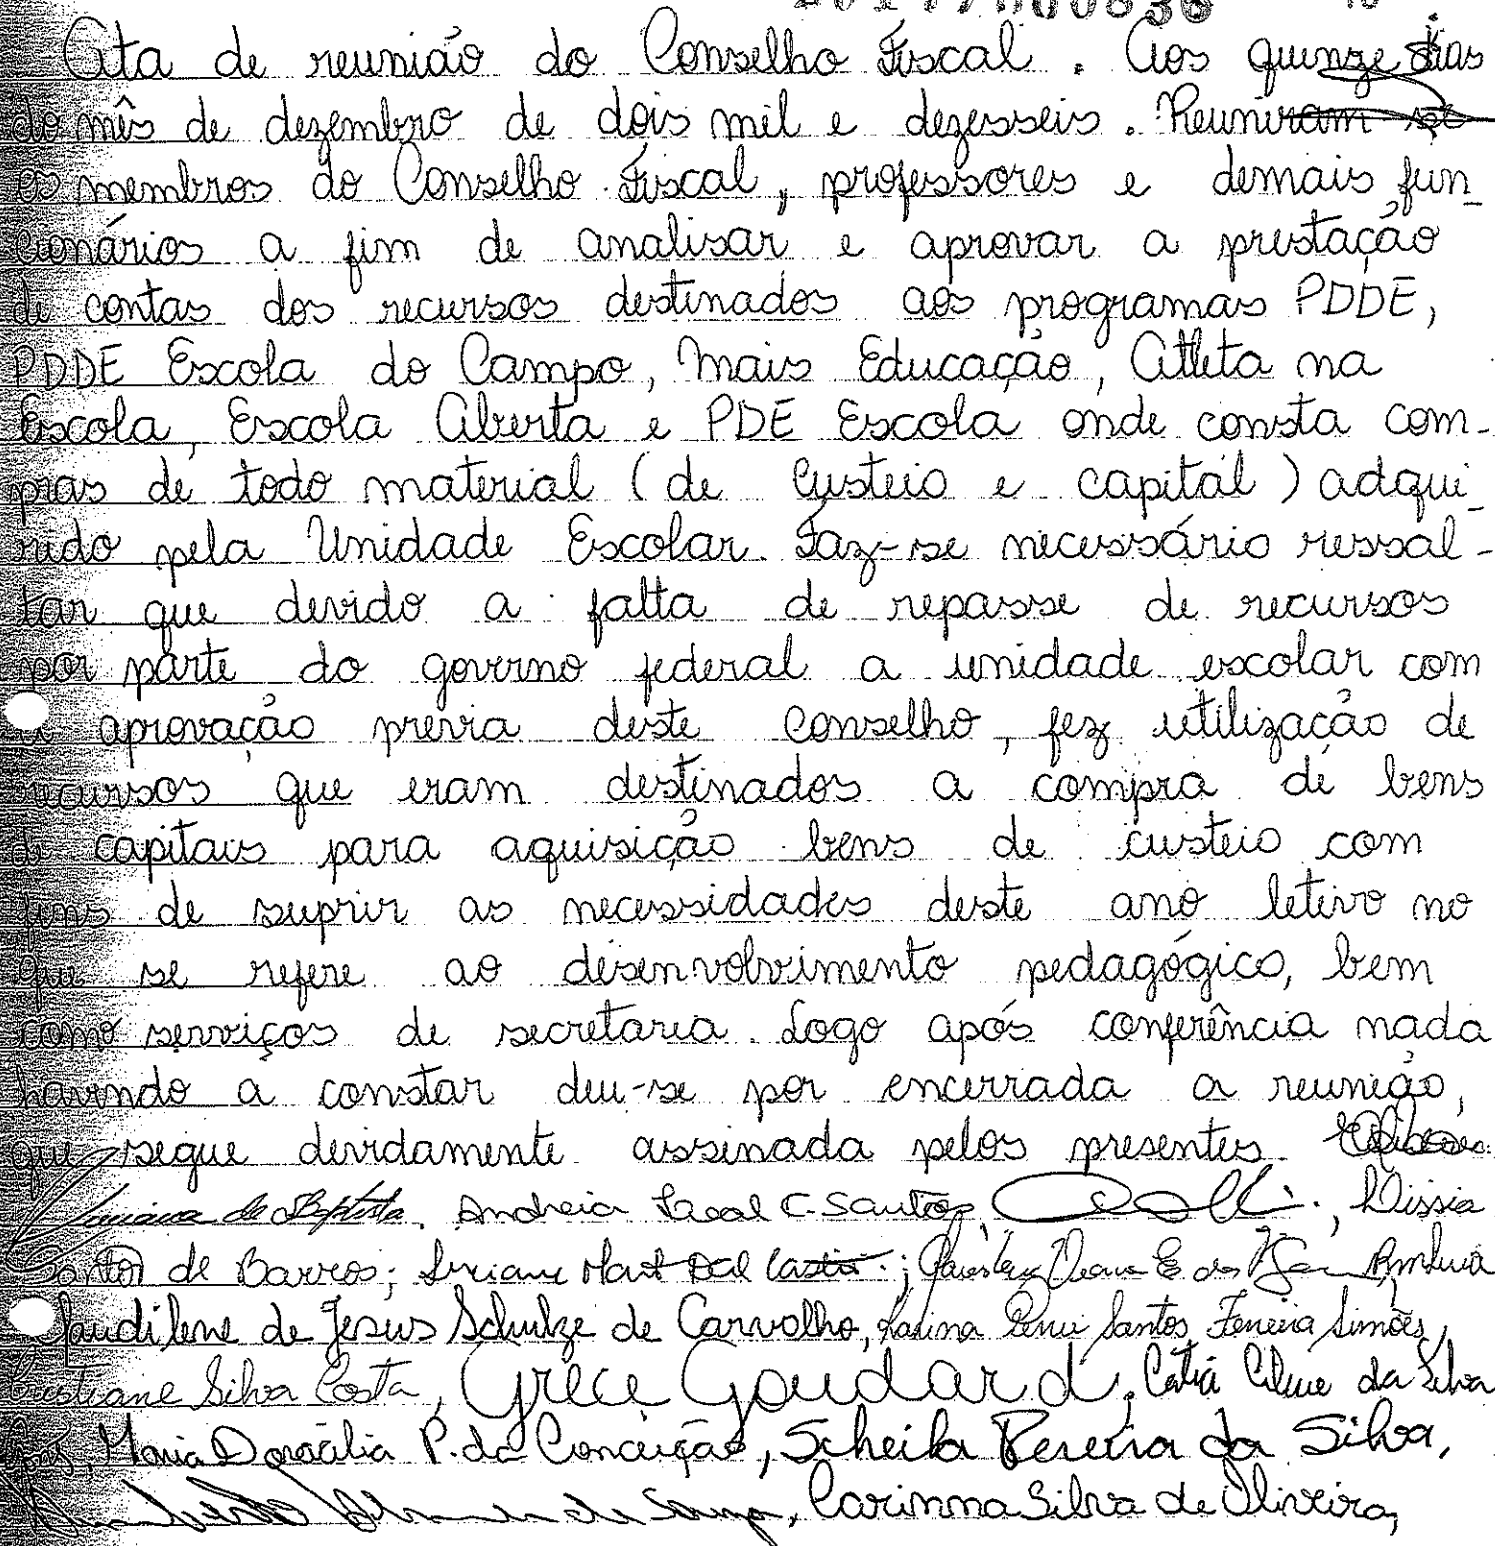 Ata de reunião do Conselho Fiscal. Aos quinze dias
do mês de dezembro de dois mil e dezesseis. Reuniram se
os membros do Conselho Fiscal, professores e demais fun_
cionários a fim de analisar e aprovar a prestação
de contas dos recursos destinados aos programas PDDE,
PDDE Escola do Campo, Mais Educação, Atleta na
Escola, Escola Aberta e PDE Escola onde consta com-
pras de todo material (de Custeio e capital) adqui_
rido pela Unidade Escolar. Faz-se necessário ressal-
tar que devido a falta de repasse de recursos
por parte do governo federal a unidade escolar com
a aprovação previa deste Conselho, fez utilização de
recursos que eram destinados a compra de bens
de capitais para aquisição bens de custeio com
fins de suprir as necessidades deste ano letivo no
que se refere ao desenvolvimento pedagógico, bem
como serviços de secretaria. Logo após conferência nada
havendo a constar deu-se por encerrada a reunião,
que segue devidamente assinada pelos presentes.
de Baptista, Andreia Leal C. Santos, Missia
Santos de Barros; Luciane
Laudilene de Jesus Schulze de Carvalho, Karina Santos Ferreira Simões,
Cristiane Silva Costa, Grece Goudard, Catia Cilene da Silva
Maria Doracilia P. da Conceição, Scheila Pereira da Silva,
de Souza, Carinna Silva de Oliveira,